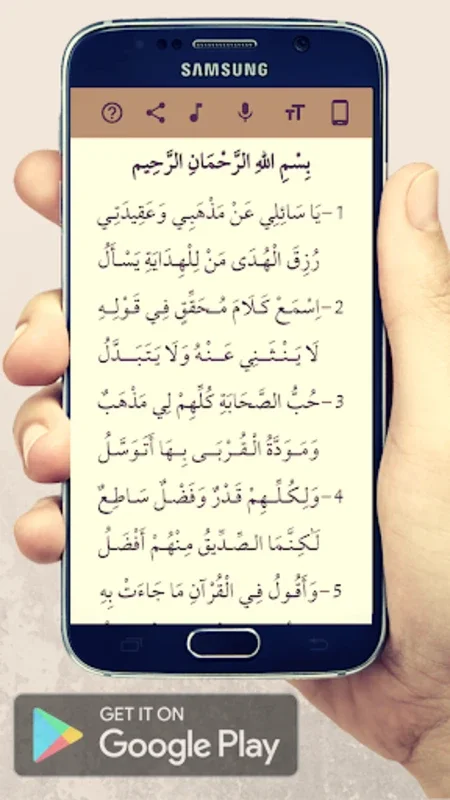 SAMSUNG
بِسْمِ اللهِ الرَّحْمَانِ الرَّحِيم
1-يَا سَائِلِي عَنْ مَذْهَبِي وَعَقِيدَتِي
رُزِقَ الْهُدَى مَنْ لِلْهِدَايَةِ يَسْأَلُ
2-اِسْمَعْ كَلَامَ مُحَقِّقٍ فِي قَوْلِهِ
لَا يَنْثَنِي عَنْهُ وَلَا يَتَبَدَّلُ
3-حُبُّ الصَّحَابَةِ كُلِّهِمْ لِي مَذْهَبٌ
وَمَوَدَّةُ الْقُرْبَى بِهَا أَتَوَسَّلُ
4-وَلِكُلِّهِمْ قَدْرٌ وَفَضْلٌ سَاطِعٌ
لَكِنَّمَا الصِّدِّيقُ مِنْهُمْ أَفْضَلُ
5-وَأَقُولُ فِي الْقُرْآنِ مَا جَاءَتْ بِهِ
GET IT ON
Google Play